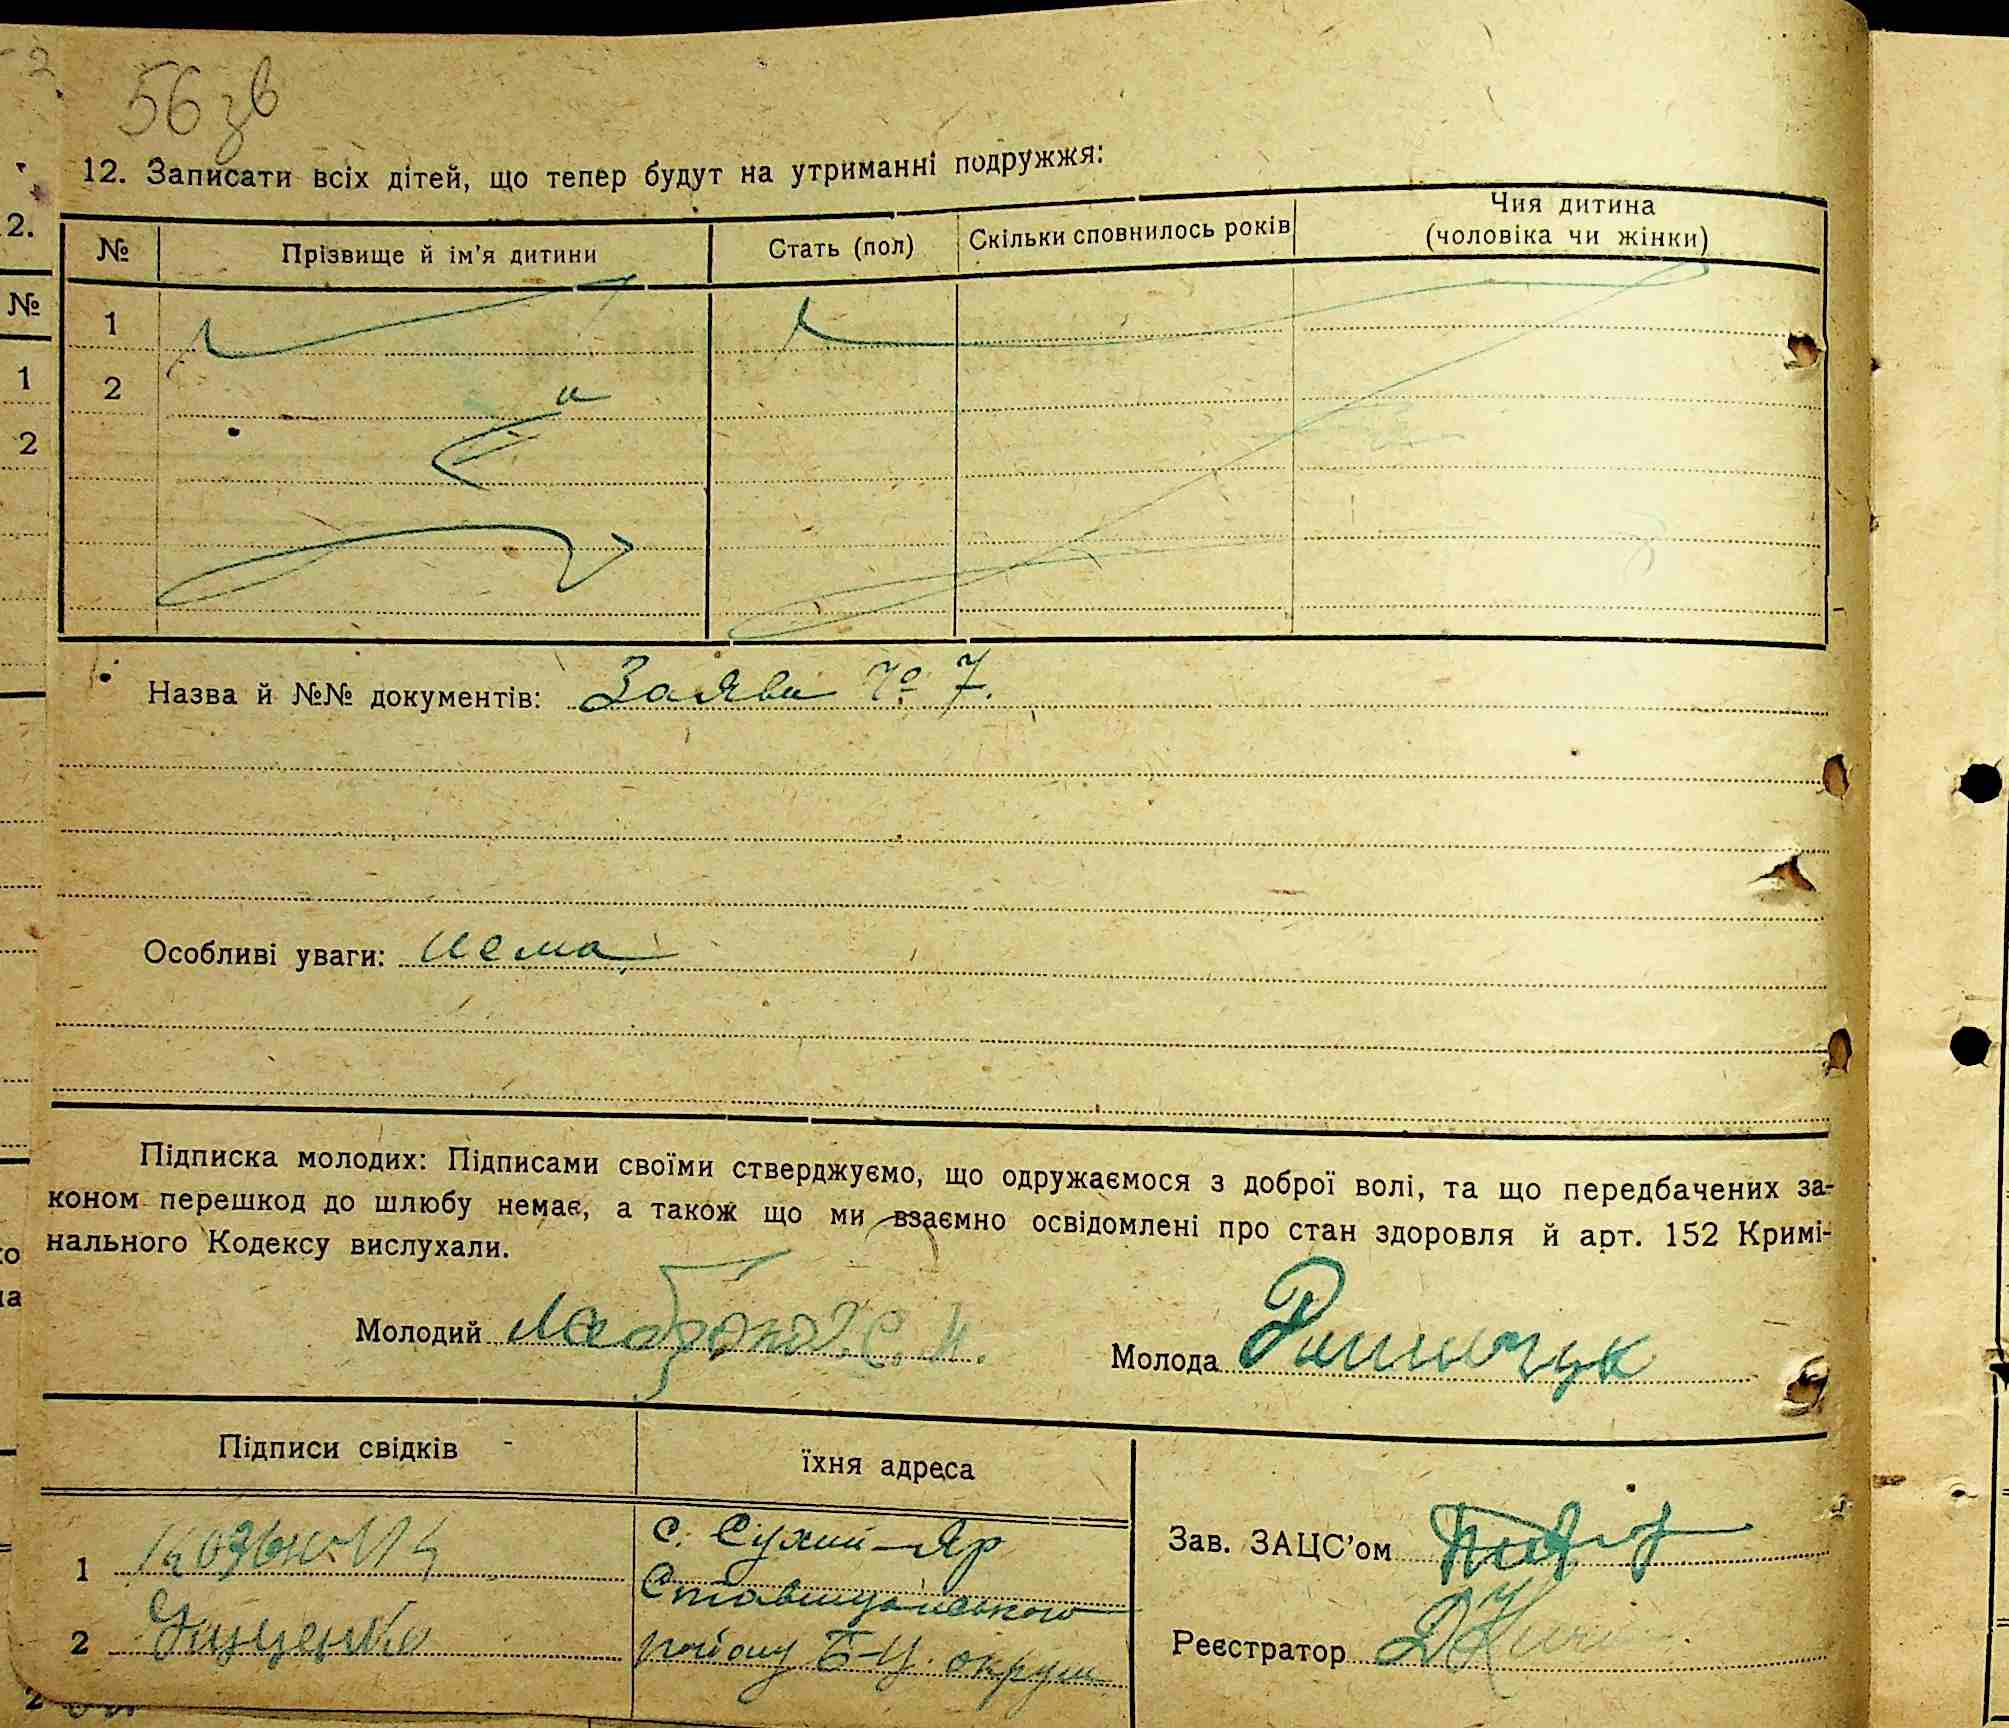 56 зв
12. Записати всіх дітей, що тепер будут на утриманні подружжя:
№ Прізвище й ім'я дитини Стать (пол) Скільки сповнилось років Чия дитина
(чоловіка чи жінки)
1
2
Назва й №№ документів: Заява № 7.
Особливі уваги: нема
Підписка молодих: Підписами своїми стверджуємо, що одружаємося з доброї волі, та що передбачених за-
коном перешкод до шлюбу немає, а також що ми взаємно освідомлені про стан здоровля й арт. 152 Кримі-
нального Кодексу вислухали.
Молодий С. М. Молода
Підписи свідків їхня адреса
1 с. Сухий-Яр
Ставищанського
2 району Б-Ц. округи
Зав. ЗАЦС'ом
Реєстратор
2.
№
1
2